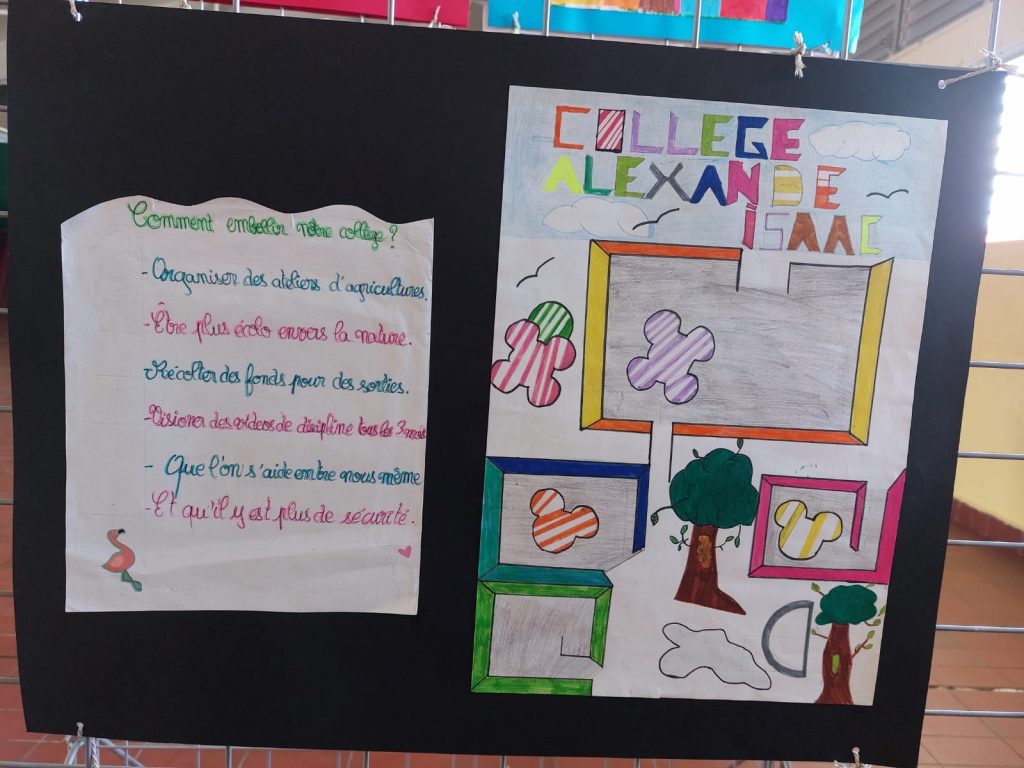 Comment embellir nôtre collège ?
- Organiser des ateliers d'agricultures.
- Être plus écolo envers la nature.
- Récolter des fonds pour des sorties.
- Visioner des videos de disipline tous les 3 mois
- Que l'on s'aide entre nous même
- Et qu'il y est plus de sécurité.
COLLEGE
ALEXANDE
ISAAC